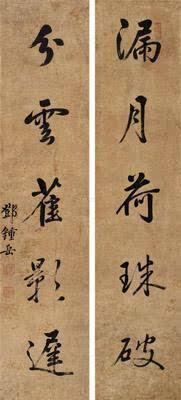 漏月荷珠破
分雲蕉影遲
鄧鍾岳